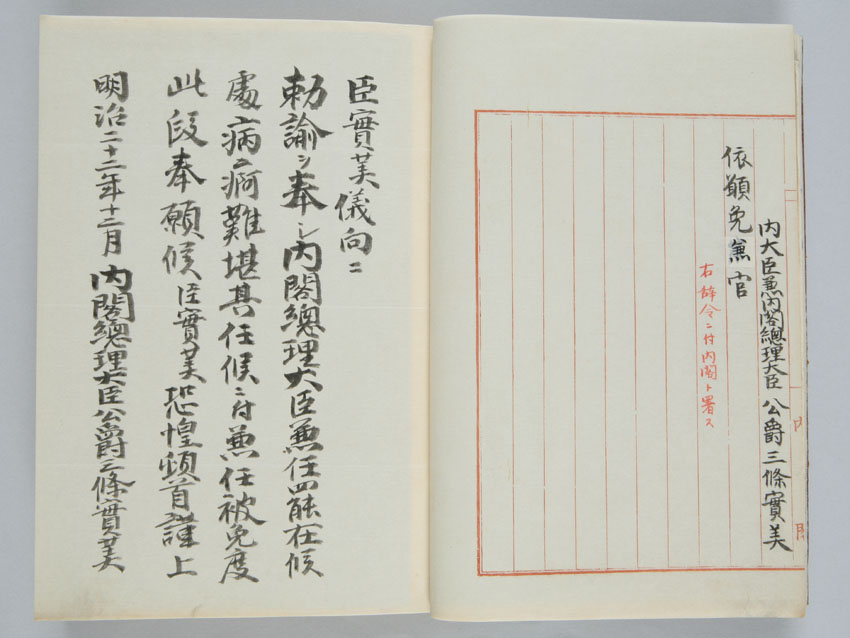 内大臣兼内閣總理大臣 公爵三條實美
依願免兼官
右辞令ニ付内閣ト署ス
内閣
臣實美儀向ニ
勅諭ヲ奉シ内閣總理大臣兼任罷在候
處病痾難堪其任候ニ付兼任被免度
此段奉願候臣實美恐惶頓首謹上
明治二十二年十二月 内閣總理大臣公爵三條實美